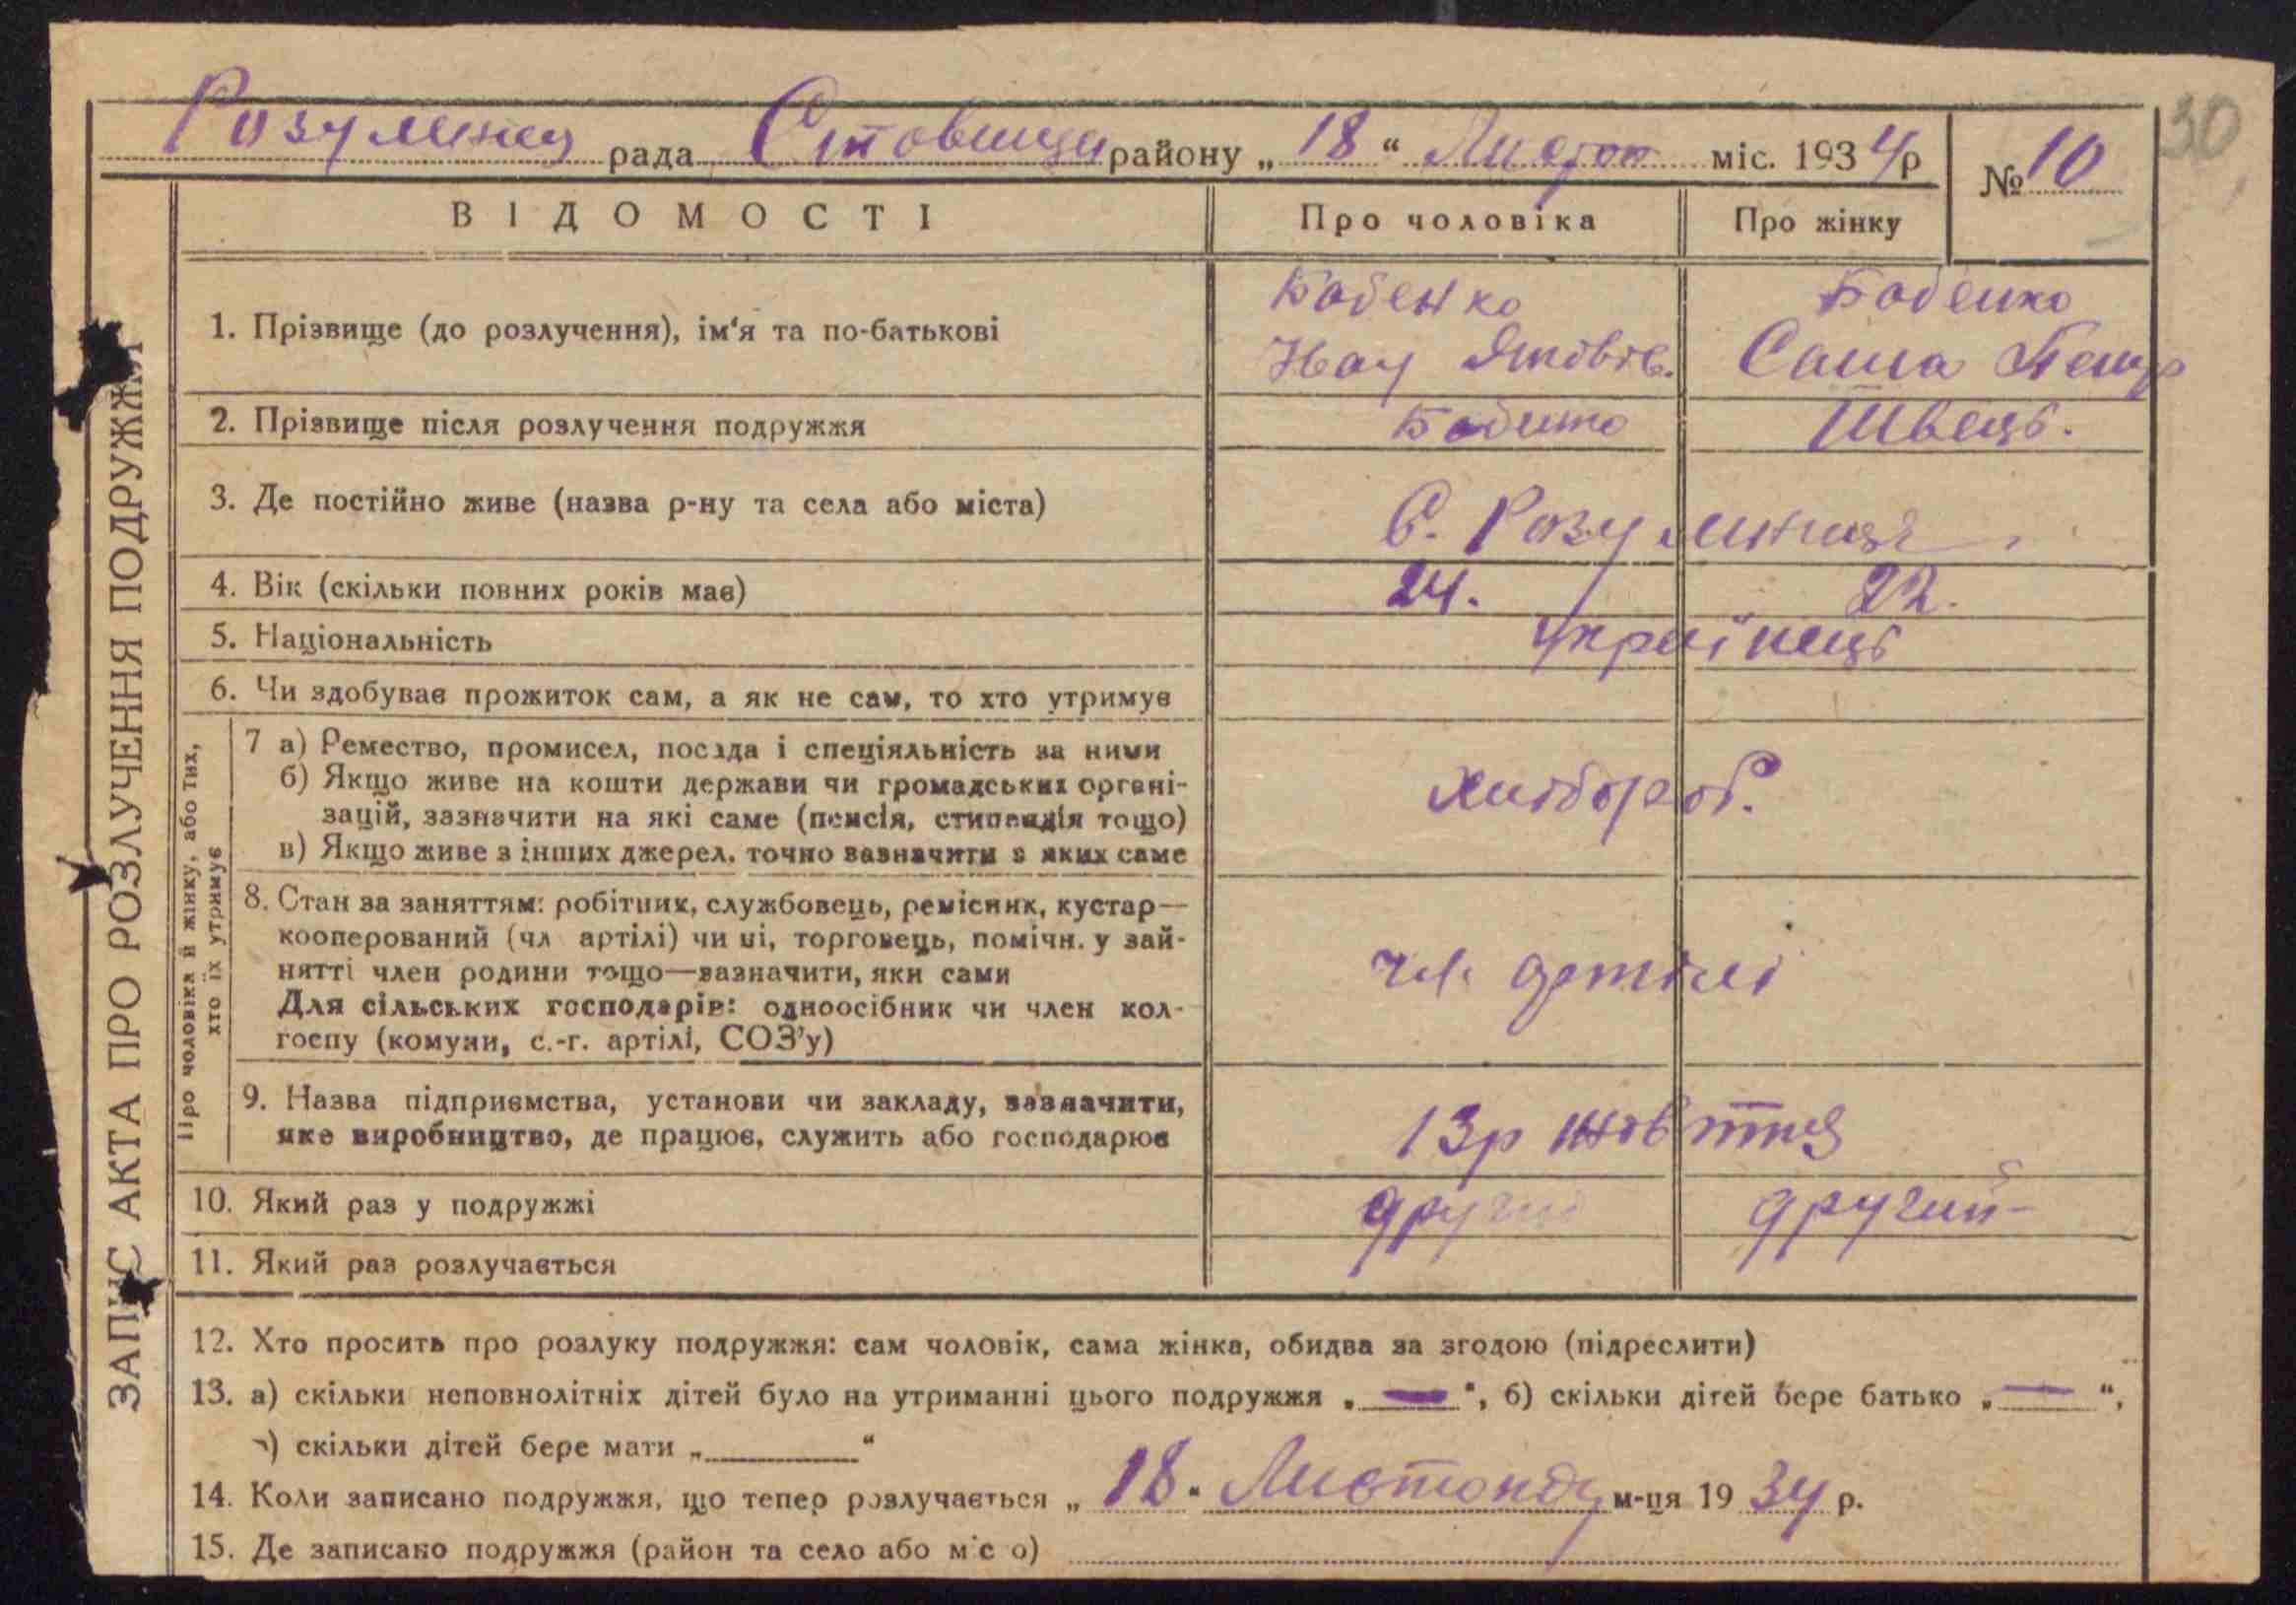 30
Розумниц рада Ставищи району „ 18 “ Листоп міс. 1934р № 10
ВІДОМОСТІ Про чоловіка Про жінку
Бабенко Бабенко
1. Прізвище (до розлучення), ім'я та по-батькові
Яківів. Саша Петр
2. Прізвище після розлучення подружжя Бабенко Швець.
3. Де постійно живе (назва р-ну та села або міста) С. Розумниця
4. Вік (скільки повних років має) 24. 22.
5. Національність Українець
6. Чи здобуває прожиток сам, а як не сам, то хто утримує
Про чоловіка й жінку, або тих,
хто їх утримує
7 а) Ремество, промисел, посада і спеціяльність за ними
б) Якщо живе на кошти держави чи громадських органі-
зацій, зазначити на які саме (пенсія, стипендія тощо) хлібороб.
в) Якщо живе з інших джерел, точно зазначити з яких саме
8. Стан за заняттям: робітник, службовець, ремісник, кустар—
кооперований (чл артілі) чи ні, торговець, помічн. у зай-
нятті член родини тощо—зазначити, яки сами чл. артілі
Для сільських господарів: одноосібник чи член кол-
госпу (комуни, с.-г. артілі, СОЗ'у)
9. Назва підприємства, установи чи закладу, зазначити,
яке виробництво, де працює, служить або господарює 13р жовтня
10. Який раз у подружжі другий другий
11. Який раз розлучається
12. Хто просить про розлуку подружжя: сам чоловік, сама жінка, обидва за згодою (підреслити)
13. а) скільки неповнолітніх дітей було на утриманні цього подружжя „ — “, б) скільки дітей бере батько „ — “,
) скільки дітей бере мати „ “
14. Коли записано подружжя, що тепер розлучається „ 18 “ Листопаду м-ця 1934 р.
15. Де записано подружжя (район та село або м с о)
ЗАПИС АКТА ПРО РОЗЛУЧЕННЯ ПОДРУЖЖЯ